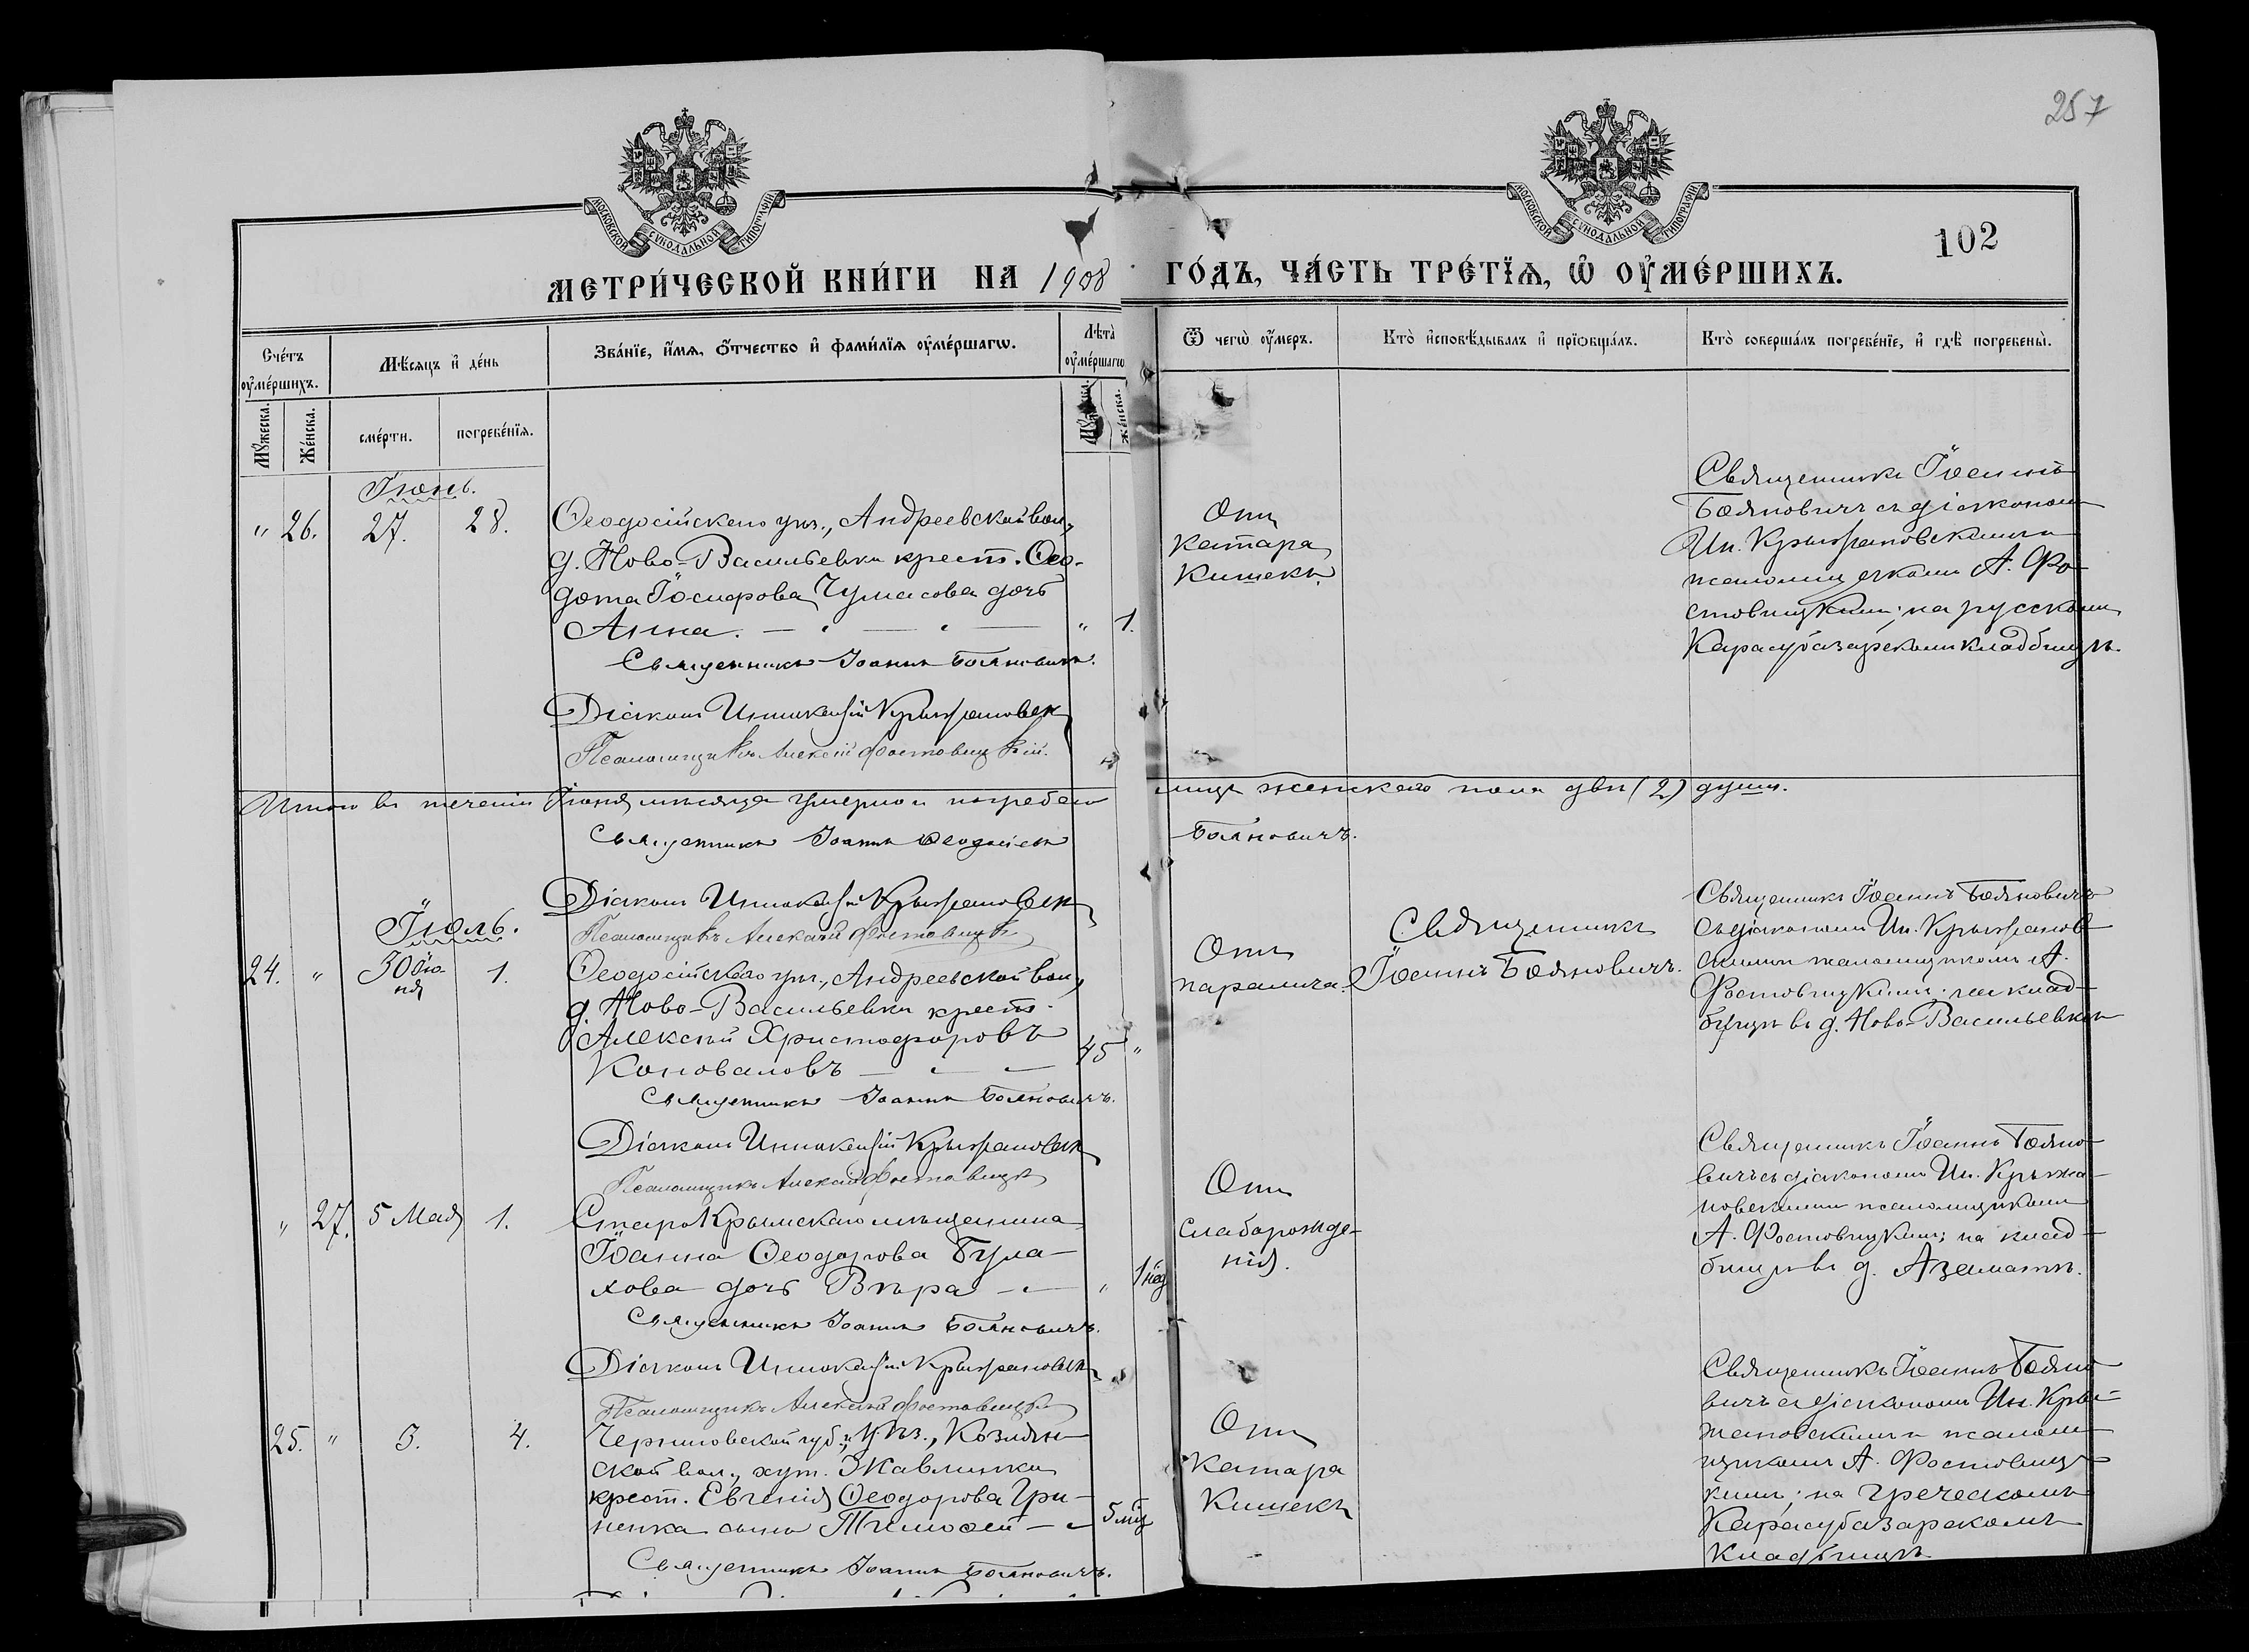 257
МОСКОВСКОЙ СѴНОДАЛЬНОЙ ТИПОГРАФІИ
МОСКОВСКОЙ СѴНОДАЛЬНОЙ ТИПОГРАФІИ
102
МЕТРИ́ЧЕСКОЙ КНИ́ГИ НА 1908 ГО́ДЪ, ЧА́СТЬ ТРЕ́ТЇѦ, Ѡ҆ ОУ҆МЕ́РШИХЪ.
Сче́тъ оу҆ме́ршихъ.
Мѣ́сѧцъ и҆ де́нь
Зва́нїе, и҆́мѧ, ѻ҆́тчество и҆ фами́лїѧ оу҆ме́ршагѡ.
Лѣ́та оу҆ме́ршагѡ
Ѿ чегѡ̀ оу҆́меръ.
Кто̀ и҆сповѣ́дывалъ и҆ прїѡбща́лъ.
Кто̀ соверша́лъ погребе́нїе, и҆ гдѣ̀ погребены̀.
Мꙋ́жеска.
Же́нска.
сме́рти.
погребе́нїѧ.
Мꙋ́жеска.
Же́нска.
Іюнь.
" 26. 27. 28.
Ѳеодосійскаго уѣз., Андреевской вол.,
д. Ново-Васильевки крест. Ѳео-
дота Іосифова Чумасова дочь
Анна. " 1.
Священникъ Іоаннъ Бояновичъ.
Діаконъ Иннокентій Крыжановск
Псаломщикъ Алексій Фостовицкій.
Отъ
катара
кишекъ
Священникъ Іоаннъ
Бояновичъ съ діакономъ
Ин. Крыжановскимъ и
псаломщикомъ А. Фо-
стовицкимъ; на русскомъ
Карасубазарскомъ кладбищѣ.
Итого въ теченіи Іюня мѣсяца умерло и погребено лицъ женскаго пола двѣ (2) души.
Священникъ Іоаннъ Бояновичъ.
Діаконъ Иннокентій Крыжановск
Псаломщикъ Алексій Фостовицкі
Іюль.
24. " 30 Ію-
ня 1.
Ѳеодосійскаго уѣз., Андреевской вол.,
д. Ново-Васильевки крест.
Алексѣй Христофоровъ
Коноваловъ 45 "
Священникъ Іоаннъ Бояновичъ.
Діаконъ Иннокентій Крыжановск
Псаломщикъ Алексій Фостовицкі
Отъ
паралича.
Священникъ
Іоаннъ Бояновичъ.
Священникъ Іоаннъ Бояновичъ
съ діакономъ Ин. Крыжанов-
скимъ и псаломщикомъ А.
Фостовицкимъ; на клад-
бищѣ въ д. Ново-Васильевкѣ
" 27. 5 Мая 1.
Старокрымскаго мѣщанина
Іоанна Ѳеодорова Була-
хова дочь Вѣра " 1 нед
Священникъ Іоаннъ Бояновичъ.
Діаконъ Иннокентій Крыжановск
Псаломщикъ Алексій Фостовицкі
Отъ
слаборожде-
нія.
Священникъ Іоаннъ Бояно-
вичъ съ діакономъ Ин. Крыжа-
новскимъ и псаломщикомъ
А. Фостовицкимъ; на клад-
бищѣ въ д. Азаматъ.
25. " 3. 4.
Черниговской губ. и уѣз., Козлян-
ской вол., хут. Жавлинки
крест. Евгенія Ѳеодорова Гри-
ненка сынъ Тимоѳей 5 мѣс
Священникъ Іоаннъ Бояновичъ.
Отъ
катара
кишекъ
Священникъ Іоаннъ Бояно-
вичъ съ діакономъ Ин. Кры-
жановскимъ и псалом-
щикомъ А. Фостовиц-
кимъ; на греческомъ
Карасубазарскомъ
кладбищѣ